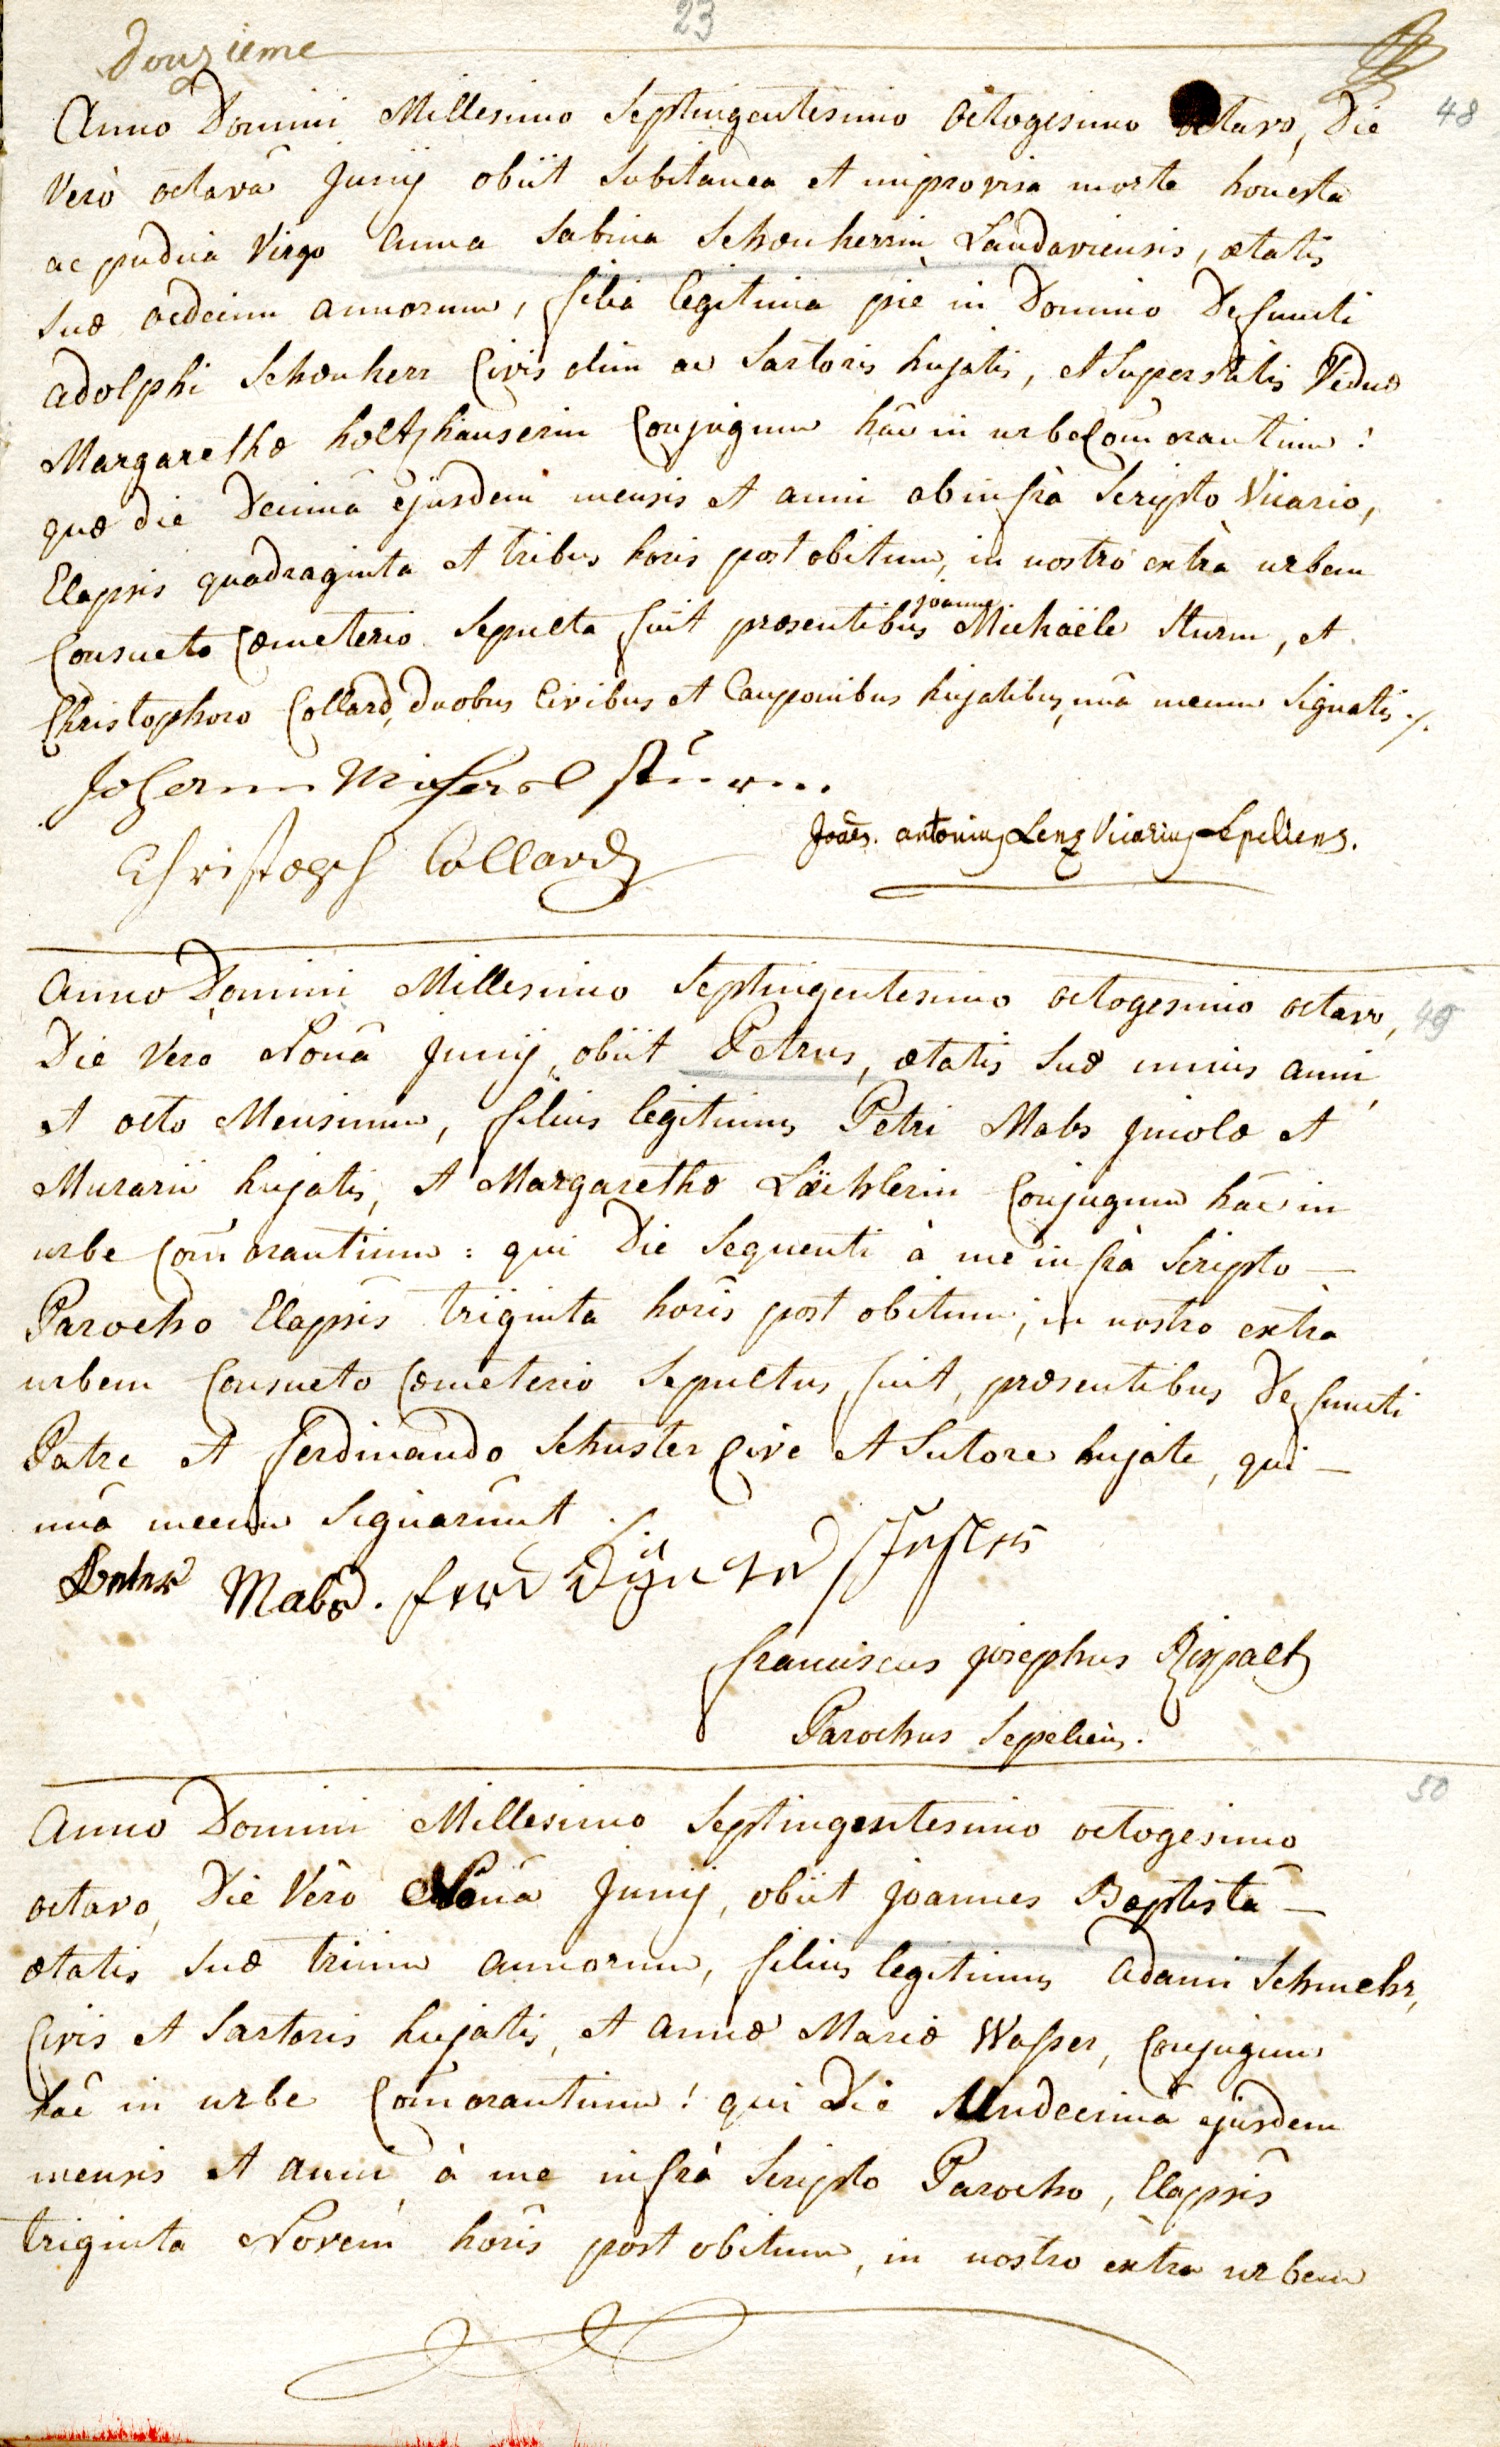 23
Douzieme
Anno Domini Millesimo Septingentesimo octogesimo octavo, Die 48
Verò octavâ Junij obiit subitanea et improvisa morte honesta
ac pudica Virgo Anna Sabina Schönherrin Landaviensis, ætatis
suæ octdecim annorum, filia legitima piè in Domino Defuncti
Adolphi Schönherr Civis olim ac Sartoris hujatis, et Superstitis Viduæ
Margarethæ Holtzhauserin Conjugum hâc in urbe com̄orantium:
quæ die Decimâ ejusdem mensis et anni ab infrà Scripto Vicario,
Elapsis quadraginta et tribus horis post obitum, in nostro extrà urbem
Consueto Cœmeterio Sepulta fuit præsentibus Joanne Michaële Sturm, et
Christophoro Collard, duobus Civibus et Cauponibus hujatibus, unâ mecum Signatis ./.
Johann Michael Sturm
Christoph Collard
Joaēs. antonius Lenz Vicarius Sepeliens.
Anno Domini Millesimo Septingentesimo octogesimo octavo, 49
Die Verò Nonâ Junij, obiit Petrus, ætatis suæ unius anni
et octo Mensium, filius legitimus Petri Mabs Incolæ et
Murarii hujatis, et Margarethæ Löchlerin Conjugum hâc in
urbe Com̄orantium: qui Die Sequenti à me infrà Scripto
Parocho Elapsis triginta horis post obitum, in nostro extra
urbem Consueto Cœmeterio Sepultus fuit, præsentibus Defuncti
Patre et Ferdinando Schuster Cive et Sutore hujate, qui
unâ mecum Signarunt ./.
Peter Mabs.
Franciscus Josephus Rizpalt
Parochus Sepeliens.
50
Anno Domini Millesimo Septingentesimo octogesimo
octavo, Die Verò Nonâ Junij, obiit Joannes Baptista
ætatis suæ trium annorum, filius legitimus Adami Schmehr,
Civis et Sartoris hujatis, et Annæ Mariæ Wasser, Conjugum
hâc in urbe Com̄orantium: qui Die Undecimâ ejusdem
mensis et anni à me infrà Scripto Parocho, Elapsis
triginta Novem horis post obitum, in nostro extra urbem